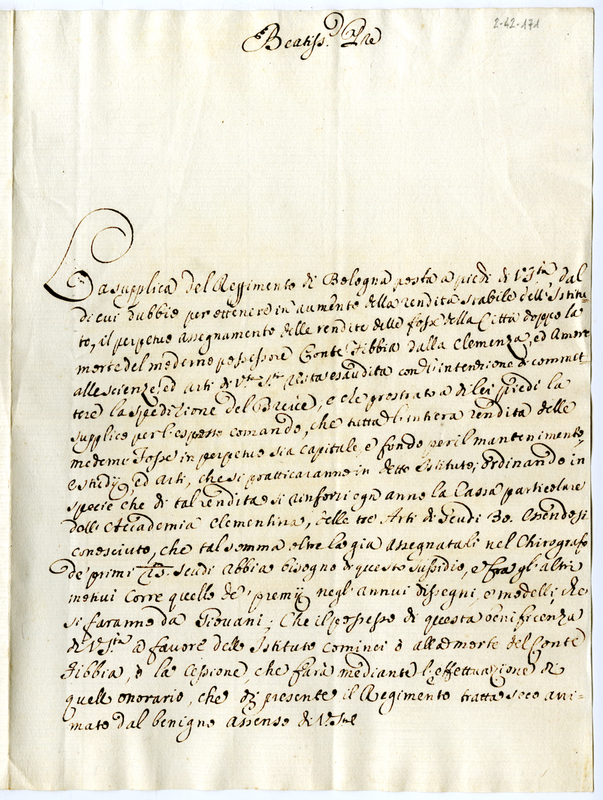 2-42-171
Beatiss.º Pre
La supplica del Reggimento di Bologna posta a piedi di V. Stà, dal
di cui dubbio per ottenere in aumento della rendita stabile dell'Istitu-
to, il perpetuo assegnamento delle rendite delle fosse della Città doppo la
morte del moderno possessore Conte Fibbia dalla clemenza, ed Amore
alle scienze, ed Arti di V. Stà resta esaudita con l'intenzione di
tere la spedizione del Breve, e che prostrato a di lei piedi la
supplico per l'espresso comando, che tutta l'intiera rendita delle
medeme Fosse in perpetuo sia capitale, e fondo per il mantenimento,
e studij, ed arti, che si pratticaranno in detto Istituto; ordinando in
specie che di tal rendita si rinforsi ogn'anno la Cassa particolare
dell'Accademia Clementina, delle tre Arti di Scudi 30. Essendosi
conosciuto, che tal somma oltre la già assegnatali nel Chirografo
de' primi 75. scudi abbia bisogno di questo sussidio, e fra gl'altri
motivi corre quello de' premij negl'annui dissegni, e modelli, che
si faranno da Giovani; Che il possesso di questa beneficenza
di V. Stà a favore dello Istituto cominci ò alla morte del Conte
Fibbia, ò la Cessione, che farà mediante l'effettuazione di
quell'onorario, che di presente il Regimento tratta seco ani-
mato dal benigno assenso di V. Stà